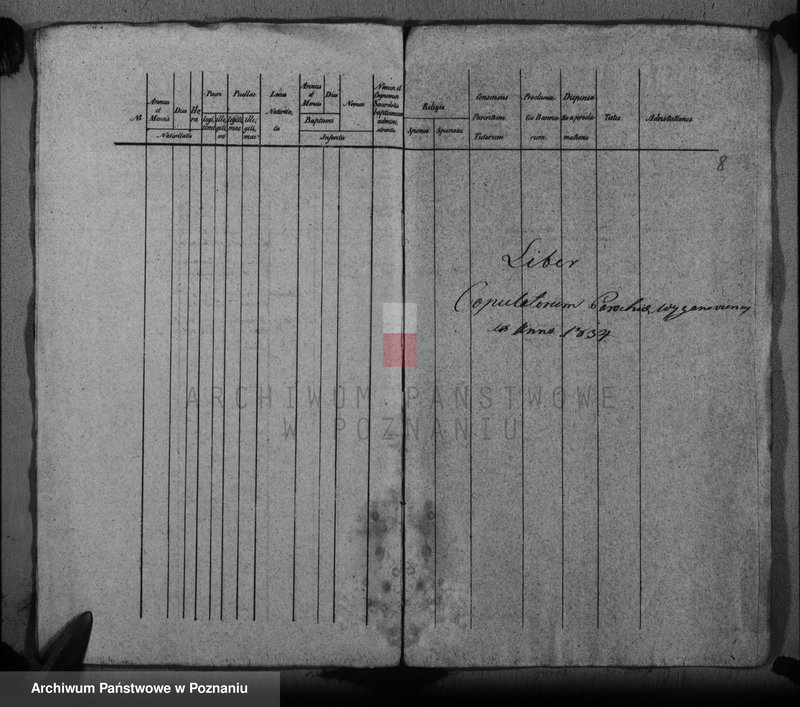 No
Annus et Mensis
Dies
Hora
Nativitatis
Pueri
legitimi
illegitimi
Puellae
legitimae
illegitimae
Locus Nativitatis
Annus et Mensis
Dies
Baptismi
Nomen
Infantis
Nomen et Cognomen Sacerdotis baptismum administrantis
Religio
Sponsi
Sponsae
Consensus Parentum Tutorum
Proclamatio Bannorum
Dispensatio a proclamatione
Testes
Adnotationes
8
Liber
Copulatorum Parochiae Wyganoviensis
Anno 1834.
ARCHIWUM PAŃSTWOWE
W POZNANIU
Archiwum Państwowe w Poznaniu